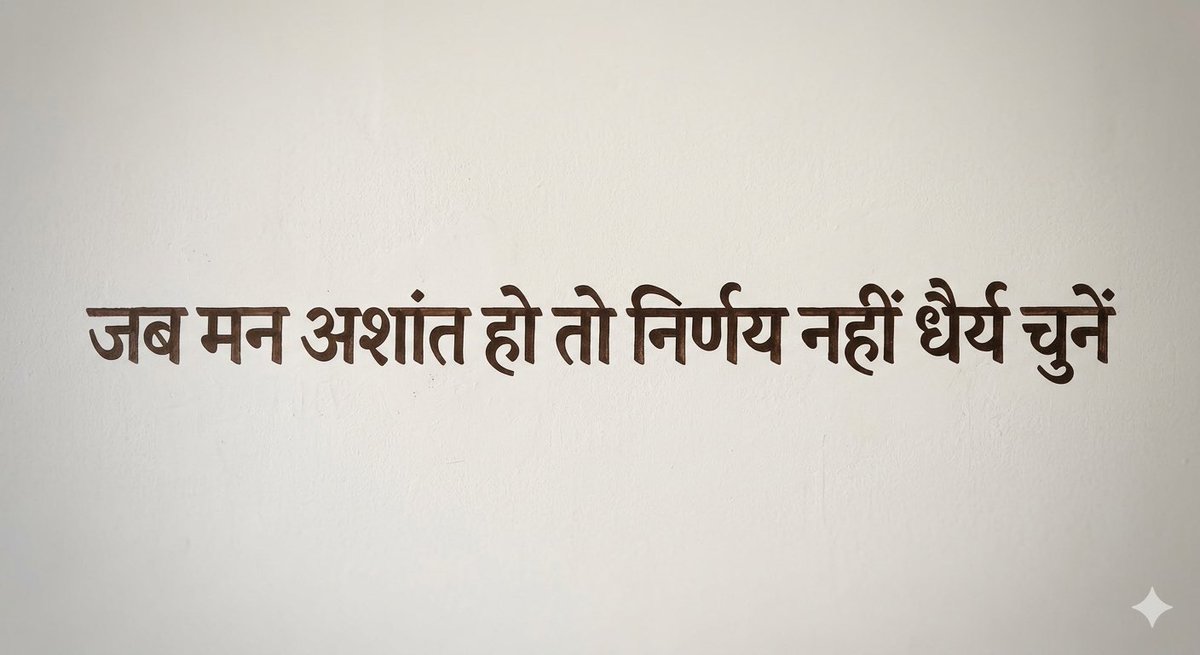 जब मन अशांत हो तो निर्णय नहीं धैर्य चुनें